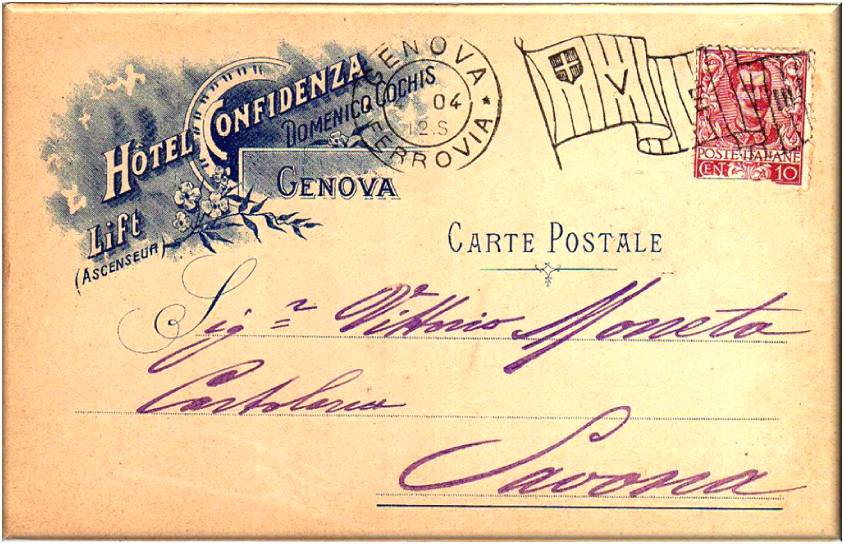 HÔTEL CONFIDENZA
DOMENICO COCHIS
GENOVA
Lift
(ASCENSEUR)
GENOVA
04
12.S
FERROVIA *
V
POSTE ITALIANE
CEN 10
CARTE POSTALE
Sigr Vittorio Moneta
Cartoleria
Savona